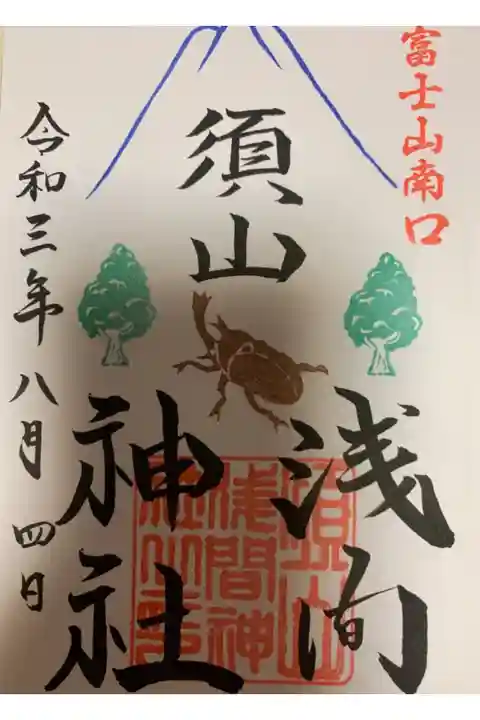 富士山南口
須山
浅间
神社
令和三年八月四日
須山
浅間神
社